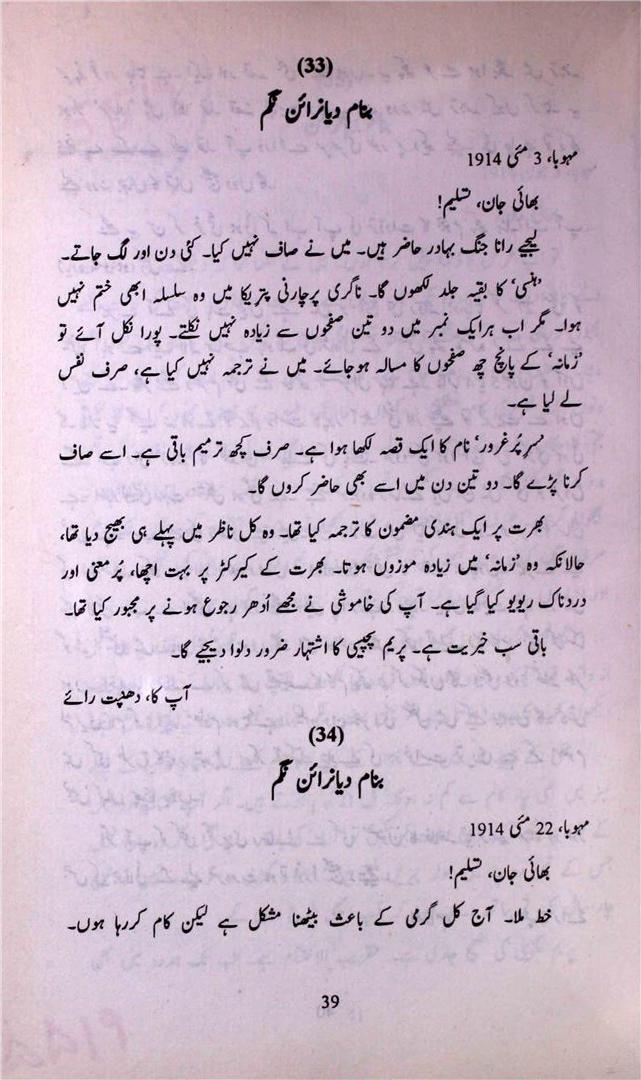 (33)
بنام دیا نرائن نگم
مہوبا، 3 مئی 1914
بھائی جان، تسلیم!
لیجیے رانا جنگ بہادر حاضر ہیں۔ میں نے صاف نہیں کیا۔ کئی دن اور لگ جاتے۔
'ہنسی' کا بقیہ جلد لکھوں گا۔ ناگری پرچارنی پتریکا میں وہ سلسلہ ابھی ختم نہیں
ہوا۔ مگر اب ہرایک نمبر میں دو تین صفحوں سے زیادہ نہیں نکلتے۔ پورا نکل آئے تو
'زمانہ' کے پانچ چھ صفحوں کا مسالہ ہوجائے۔ میں نے ترجمہ نہیں کیا ہے، صرف نفس
لے لیا ہے۔
'سرِ پُرغرور' نام کا ایک قصہ لکھا ہوا ہے۔ صرف کچھ ترمیم باقی ہے۔ اسے صاف
کرنا پڑے گا۔ دو تین دن میں اسے بھی حاضر کروں گا۔
بھرت پر ایک ہندی مضمون کا ترجمہ کیا تھا۔ وہ کل ناظر میں پہلے ہی بھیج دیا تھا،
حالانکہ وہ 'زمانہ' میں زیادہ موزوں ہوتا۔ بھرت کے کیرکٹر پر بہت اچھا، پُرمعنی اور
دردناک ریویو کیا گیا ہے۔ آپ کی خاموشی نے مجھے اُدھر رجوع ہونے پر مجبور کیا تھا۔
باقی سب خیریت ہے۔ پریم پچیسی کا اشتہار ضرور دلوا دیجیے گا۔
آپ کا، دھنپت رائے
(34)
بنام دیا نرائن نگم
مہوبا، 22 مئی 1914
بھائی جان، تسلیم!
خط ملا۔ آج کل گرمی کے باعث بیٹھنا مشکل ہے لیکن کام کررہا ہوں۔
39